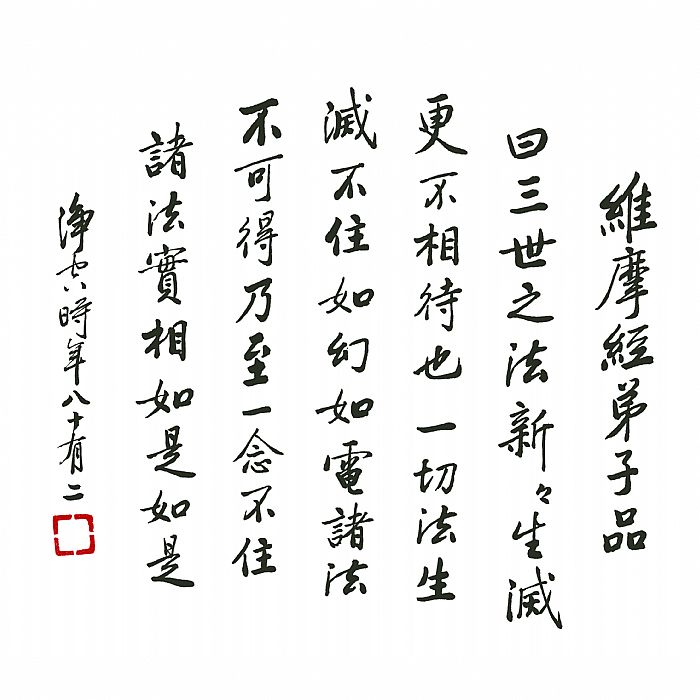 維摩經弟子品
曰三世之法新々生滅
更不相待也一切法生
滅不住如幻如電諸法
不可得乃至一念不住
諸法實相如是如是
淨空時年八十有二